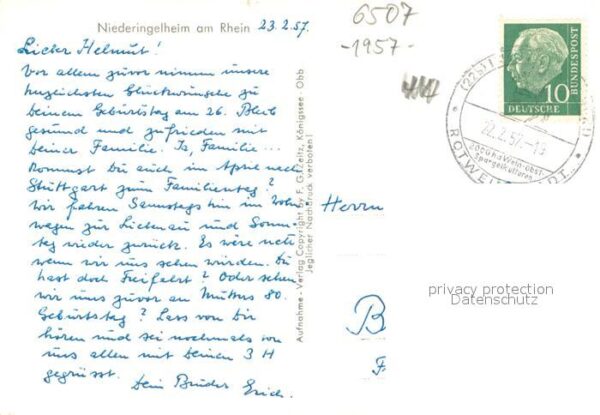 Niederingelheim am Rhein 23.2.57.
Lieber Helmut!
Vor allem zuvor nimm unsere
herzlichsten Glückwünsche zu
Deinem Geburtstag am 26. Bleib
gesund und zufrieden mit
Deiner Familie. Ja, Familie...
Kommst Du auch im April nach
Stuttgart zum Familientag?
Wir fahren Samstags hin im
wagen zur Liebenau und Sonn-
tag wieder zurück. Es wäre nett
wenn wir uns sehen würden. Du
hast doch Freifahrt? Oder sehen
wir uns zuvor an Mutters 80.
Geburtstag? Lass von Dir
hören und sei nochmals von
uns allen mit Deinen 3 H
gegrüsst.
Dein Bruder Erich.
Aufnahme-Verlag Copyright by F. G. Zeitz, Königssee Obb
Jeglicher Nachdruck verboten!
6507
-1957-
Herrn
B
F
DEUTSCHE
BUNDESPOST
10
(22b)
22.2.57.-18
Spargelkulturen
ROTWEINSTADT
privacy protection
Datenschutz